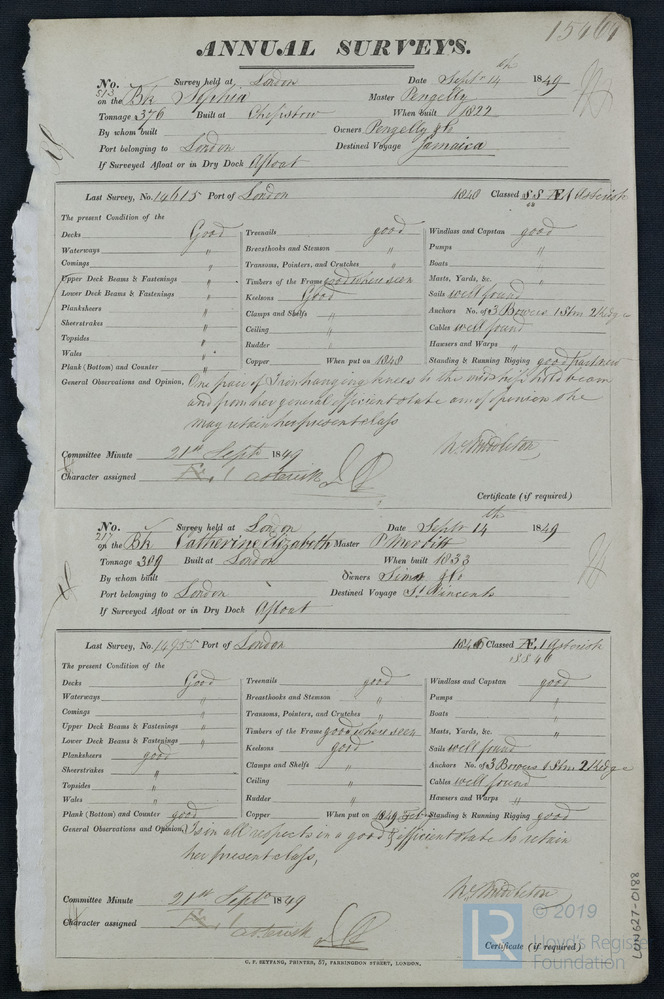 ANNUAL SURVEYS.
No. 513 Survey held at London Date Septr 14th 1849
on the Bk Sophia Master Pengelly
Tonnage 376 Built at Chepstow When built 1822
By whom built Owners Pengelly & Co
Port belonging to London Destined Voyage Jamaica
If Surveyed Afloat or in Dry Dock Afloat
Last Survey, No. 14615 Port of London 1848 Classed Æ 1 Asterisk
The present Condition of the
Decks Good Treenails good Windlass and Capstan good
Waterways " Breasthooks and Stemson " Pumps "
Comings " Transoms, Pointers, and Crutches " Boats "
Upper Deck Beams & Fastenings " Timbers of the Frame good where seen Masts, Yards, &c. "
Lower Deck Beams & Fastenings " Keelsons Good Sails well found
Planksheers " Clamps and Shelfs " Anchors No. of 3 Bowers 1 Stm 2 Kedge
Sheerstrakes " Ceiling " Cables well found
Topsides " Rudder " Hawsers and Warps "
Wales " Copper When put on 1848 Standing & Running Rigging good part new
Plank (Bottom) and Counter "
General Observations and Opinion, One pair of Iron hanging knees to the midships hold beam
and from her general efficient state am of opinion she
may retain her present class
Wm Middleton
Committee Minute 21st Septr 1849
Character assigned Æ 1 asterisk
Certificate (if required)
No. 217 Survey held at London Date Septr 14th 1849
on the Bk Catherine Elizabeth Master P Merritt
Tonnage 309 Built at London When built 1833
By whom built Owners Sims & Co
Port belonging to London Destined Voyage St Vincents
If Surveyed Afloat or in Dry Dock Afloat
Last Survey, No. 14955 Port of London 1848 Classed Æ 1 Asterisk
SS 46
The present Condition of the
Decks Good Treenails good Windlass and Capstan good
Waterways " Breasthooks and Stemson " Pumps "
Comings " Transoms, Pointers, and Crutches " Boats "
Upper Deck Beams & Fastenings " Timbers of the Frame good where seen Masts, Yards, &c. "
Lower Deck Beams & Fastenings " Keelsons good Sails well found
Planksheers good Clamps and Shelfs " Anchors No. of 3 Bowers 1 Stm 2 Kedge
Sheerstrakes " Ceiling " Cables well found
Topsides " Rudder " Hawsers and Warps "
Wales " Copper When put on 1849 Feby Standing & Running Rigging good
Plank (Bottom) and Counter good
General Observations and Opinion, Is in all respects in a good & efficient state to retain
her present class,
Wm Middleton
Committee Minute 21st Septr 1849
Character assigned Æ 1 asterisk
Certificate (if required)
C. F. SEYFANG, PRINTER, 57, FARRINGDON STREET, LONDON.
LR © 2019
Lloyd's Register
Foundation
LON627-0188